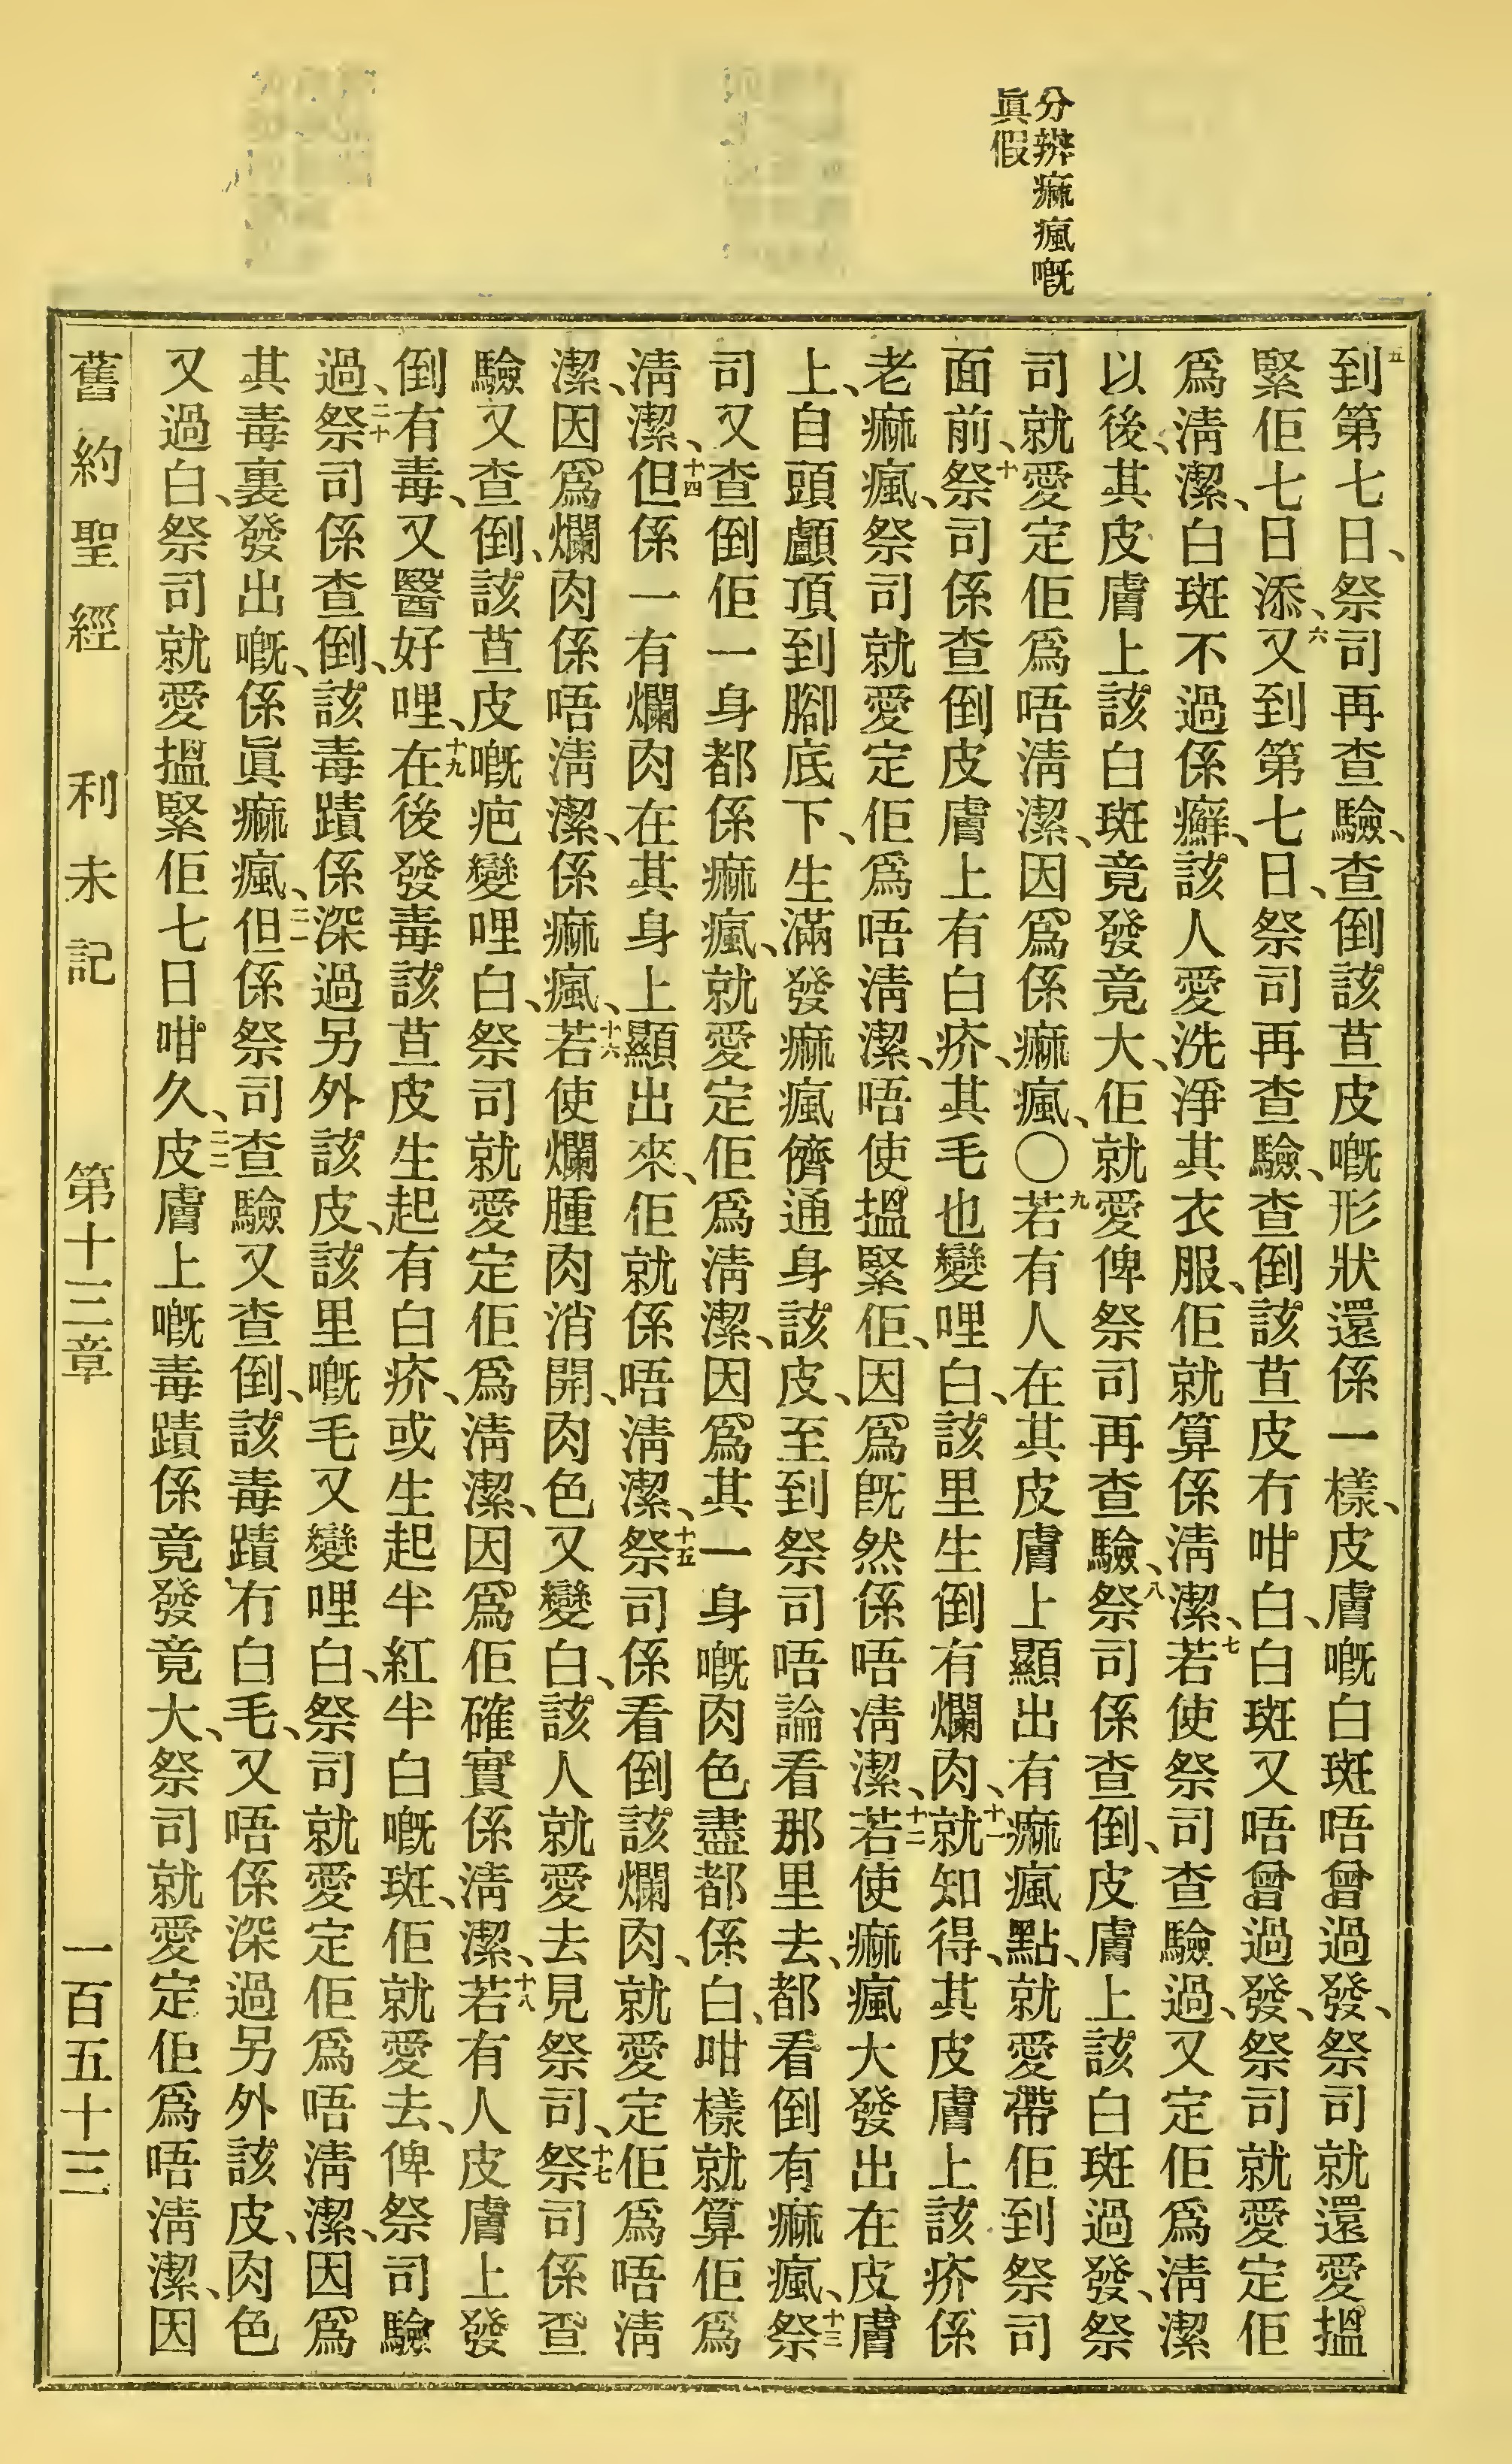 分辨痲瘋嘅
眞假
五到第七日、祭司再查驗、查倒該苴皮嘅形狀還係一樣、皮膚嘅白斑唔曾過發、祭司就還愛搵
緊佢七日添、六又到第七日、祭司再查驗、查倒該苴皮冇咁白、白斑又唔曾過發、祭司就愛定佢
爲淸潔、白斑不過係癬、該人愛洗淨其衣服、佢就算係淸潔、七若使祭司查驗過、又定佢爲淸潔
以後、其皮膚上該白斑竟發竟大、佢就愛俾祭司再查驗、八祭司係查倒、皮膚上該白斑過發、祭
司就愛定佢爲唔淸潔、因爲係痲瘋、〇九若有人在其皮膚上顯出有痲瘋點、就愛帶佢到祭司
面前、十祭司係查倒皮膚上有白疥、其毛也變哩白、該里生倒有爛肉、十一就知得、其皮膚上該疥係
老痲瘋、祭司就愛定佢爲唔淸潔、唔使搵緊佢、因爲旣然係唔淸潔、十二若使痲瘋大發出在皮膚
上、自頭顱頂到腳底下、生滿發痲瘋儕通身該皮、至到祭司唔論看那里去、都看倒有痲瘋、十三祭
司又查倒佢一身都係痲瘋、就愛定佢爲淸潔、因爲其一身嘅肉色盡都係白、咁樣就算佢爲
淸潔、十四但係一有爛肉在其身上顯出來、佢就係唔淸潔、十五祭司係看倒該爛肉、就愛定佢爲唔淸
潔、因爲爛肉係唔淸潔、係痲瘋、十六若使爛腫肉消開、肉色又變白、該人就愛去見祭司、十七祭司係查
驗又查倒、該苴皮嘅疤變哩白、祭司就愛定佢爲淸潔、因爲佢確實係淸潔、十八若有人皮膚上發
倒有毒、又醫好哩、十九在後發毒該苴皮生起有白疥、或生起半紅半白嘅斑、佢就愛去、俾祭司驗
過、二十祭司係查倒、該毒蹟係深過另外該皮、該里嘅毛又變哩白、祭司就愛定佢爲唔淸潔、因爲
其毒裏發出嘅、係眞痲瘋、二一但係祭司查驗又查倒、該毒蹟冇白毛、又唔係深過另外該皮、肉色
又過白、祭司就愛搵緊佢七日咁久、二二皮膚上嘅毒蹟係竟發竟大、祭司就愛定佢爲唔淸潔、因
舊約聖經　利未記　第十三章　一百五十三